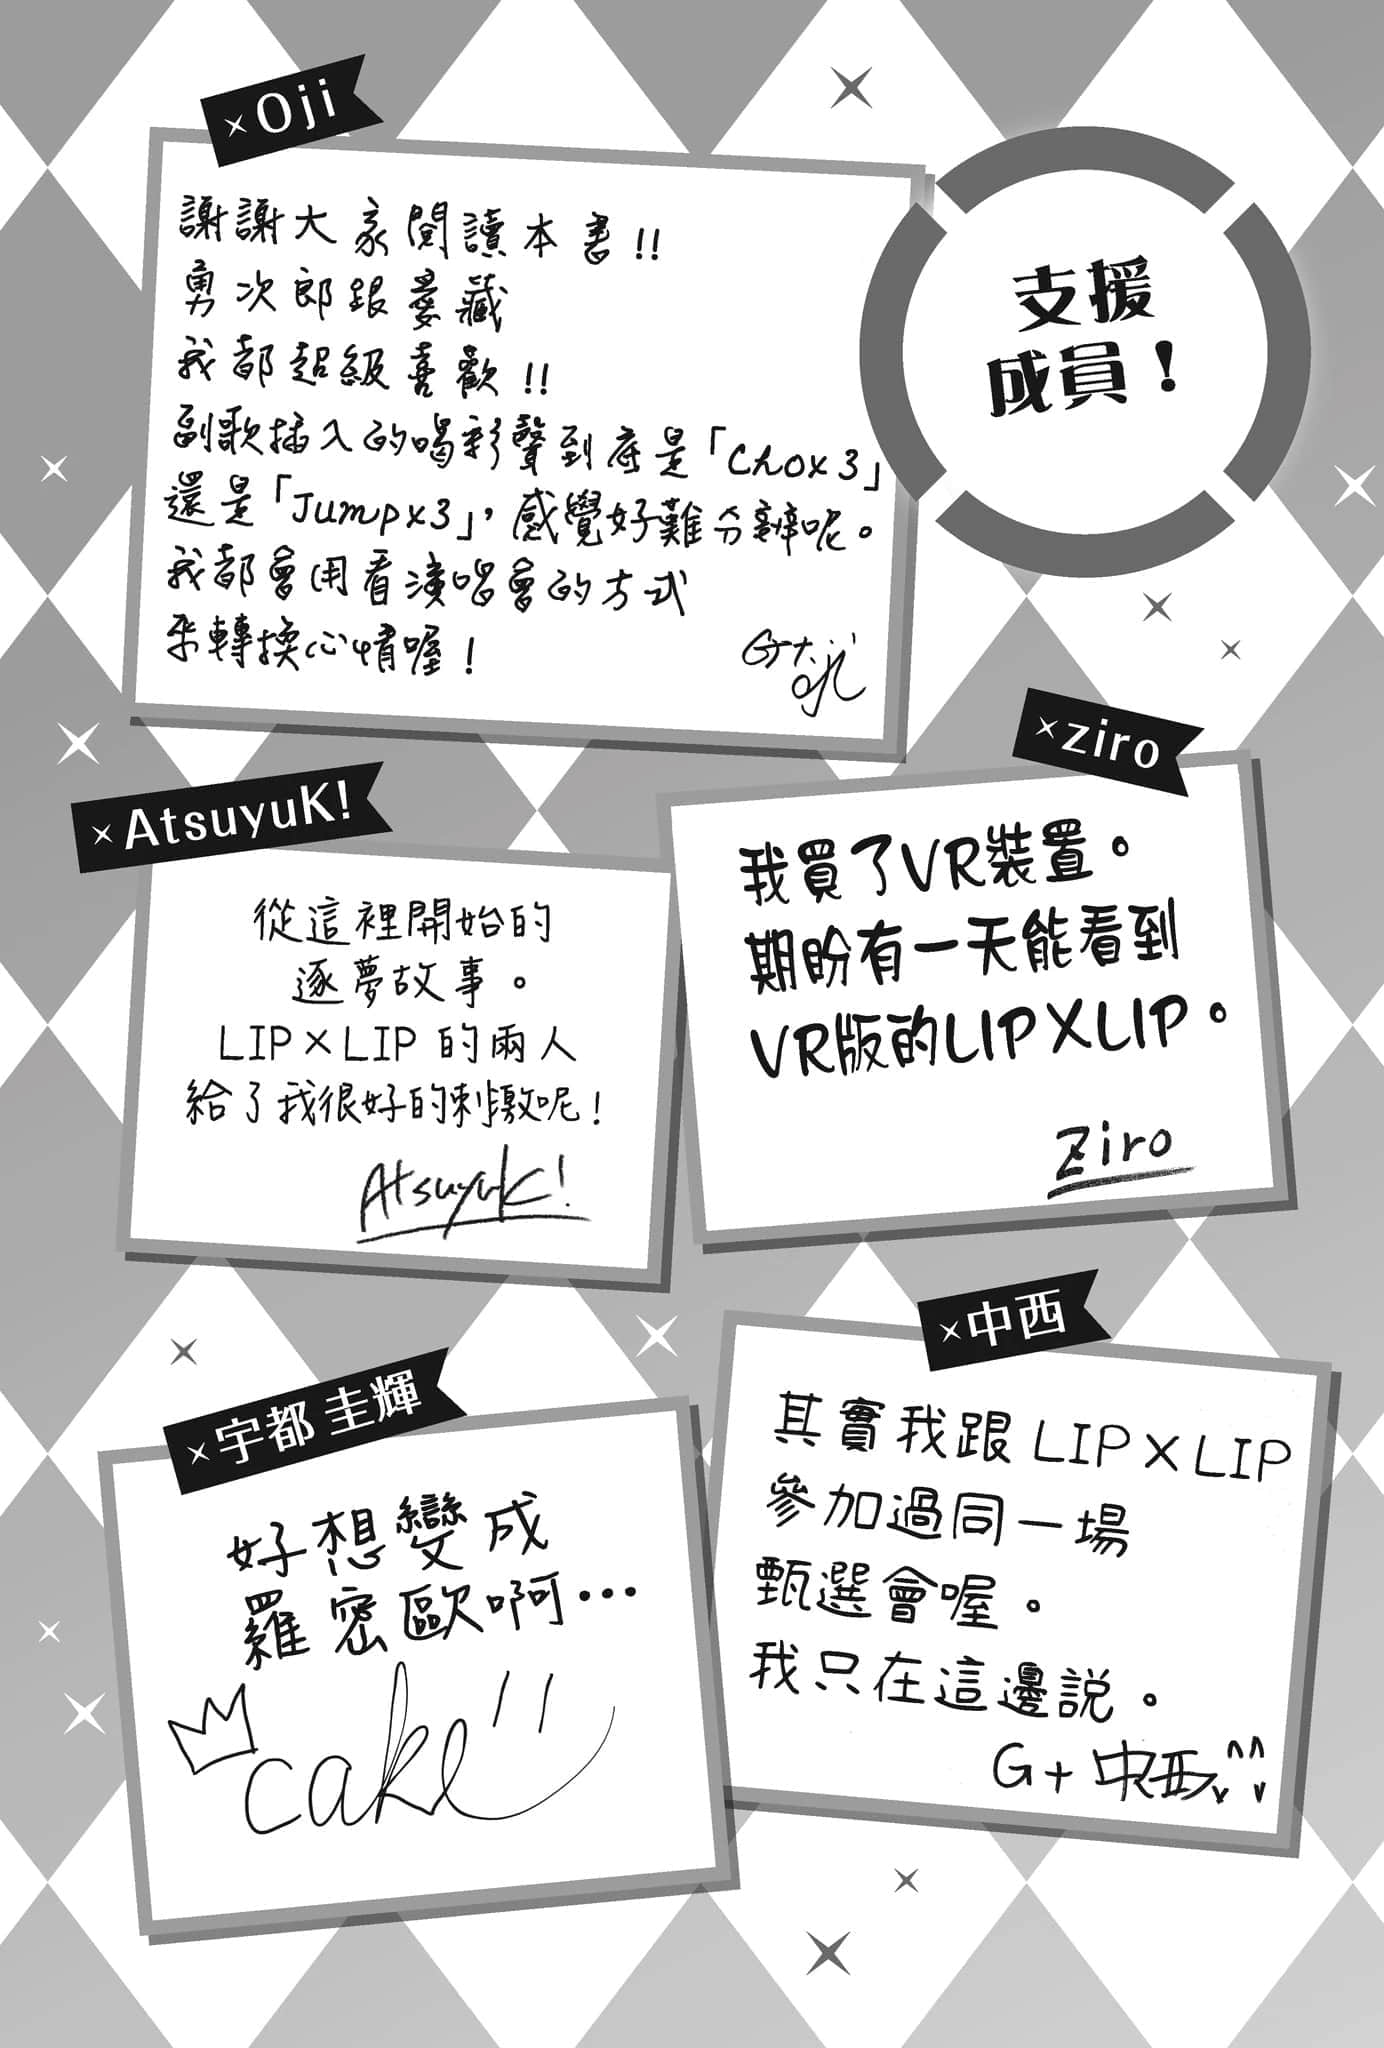 Oji
謝謝大家閱讀本書!!
勇次郎跟愛藏
我都超級喜歡!!
副歌插入的喝彩聲到底是「Chox3」
還是「Jumpx3」,感覺好難分辨呢。
我都會用看演唱會的方式
來轉換心情喔!
Gt. oji
支援
成員!
AtsuyuK!
從這裡開始的
逐夢故事。
LIP×LIP 的兩人
給了我很好的刺激呢!
AtsuyuK!
ziro
我買了VR裝置。
期盼有一天能看到
VR版的LIP×LIP。
Ziro
宇都 圭輝
好想變成
羅密歐啊…
cake
中西
其實我跟 LIP×LIP
參加過同一場
甄選會喔。
我只在這邊說。
G+ 中西